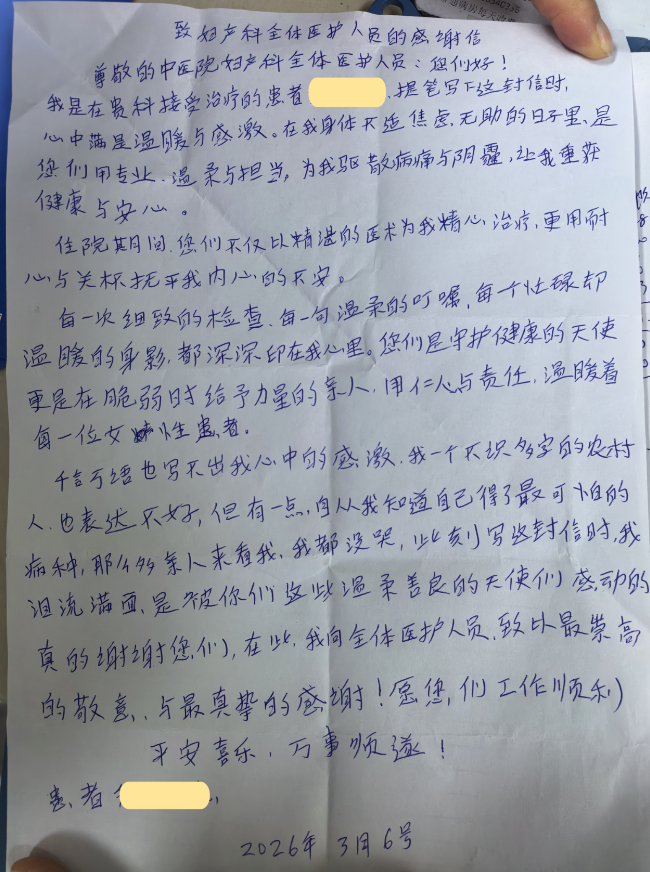 致妇产科全体医护人员的感谢信
尊敬的中医院妇产科全体医护人员：您们好！
我是在贵科接受治疗的患者 提笔写下这封信时,
心中满是温暖与感激。在我身体不适焦虑、无助的日子里、是
您们用专业、温柔与担当，为我驱散病痛与阴霾，让我重获
健康与安心。
住院期间、您们不仅以精湛的医术为我精心治疗，更用耐
心与关怀抚平我内心的不安。
每一次细致的检查、每一句温柔的叮嘱，每一个忙碌却
温暖的身影，都深深印在我心里。您们是守护健康的天使
更是在脆弱时给予力量的亲人，用仁心与责任，温暖着
每一位女性患者。
千言万语也写不出我心中的感激，我一个不识多字的农村
人、也表达不好，但有一点，自从我知道自己得了最可怕的
病种，那么多亲人来看我、我都没哭，此刻写这封信时，我
泪流满面、是被你们这些温柔善良的天使们感动的
真的谢谢您们，在此，我向全体医护人员、致以最崇高
的敬意、与最真挚的感谢！愿您们工作顺利
平安喜乐，万事顺遂！
患者
2026年 3月6号